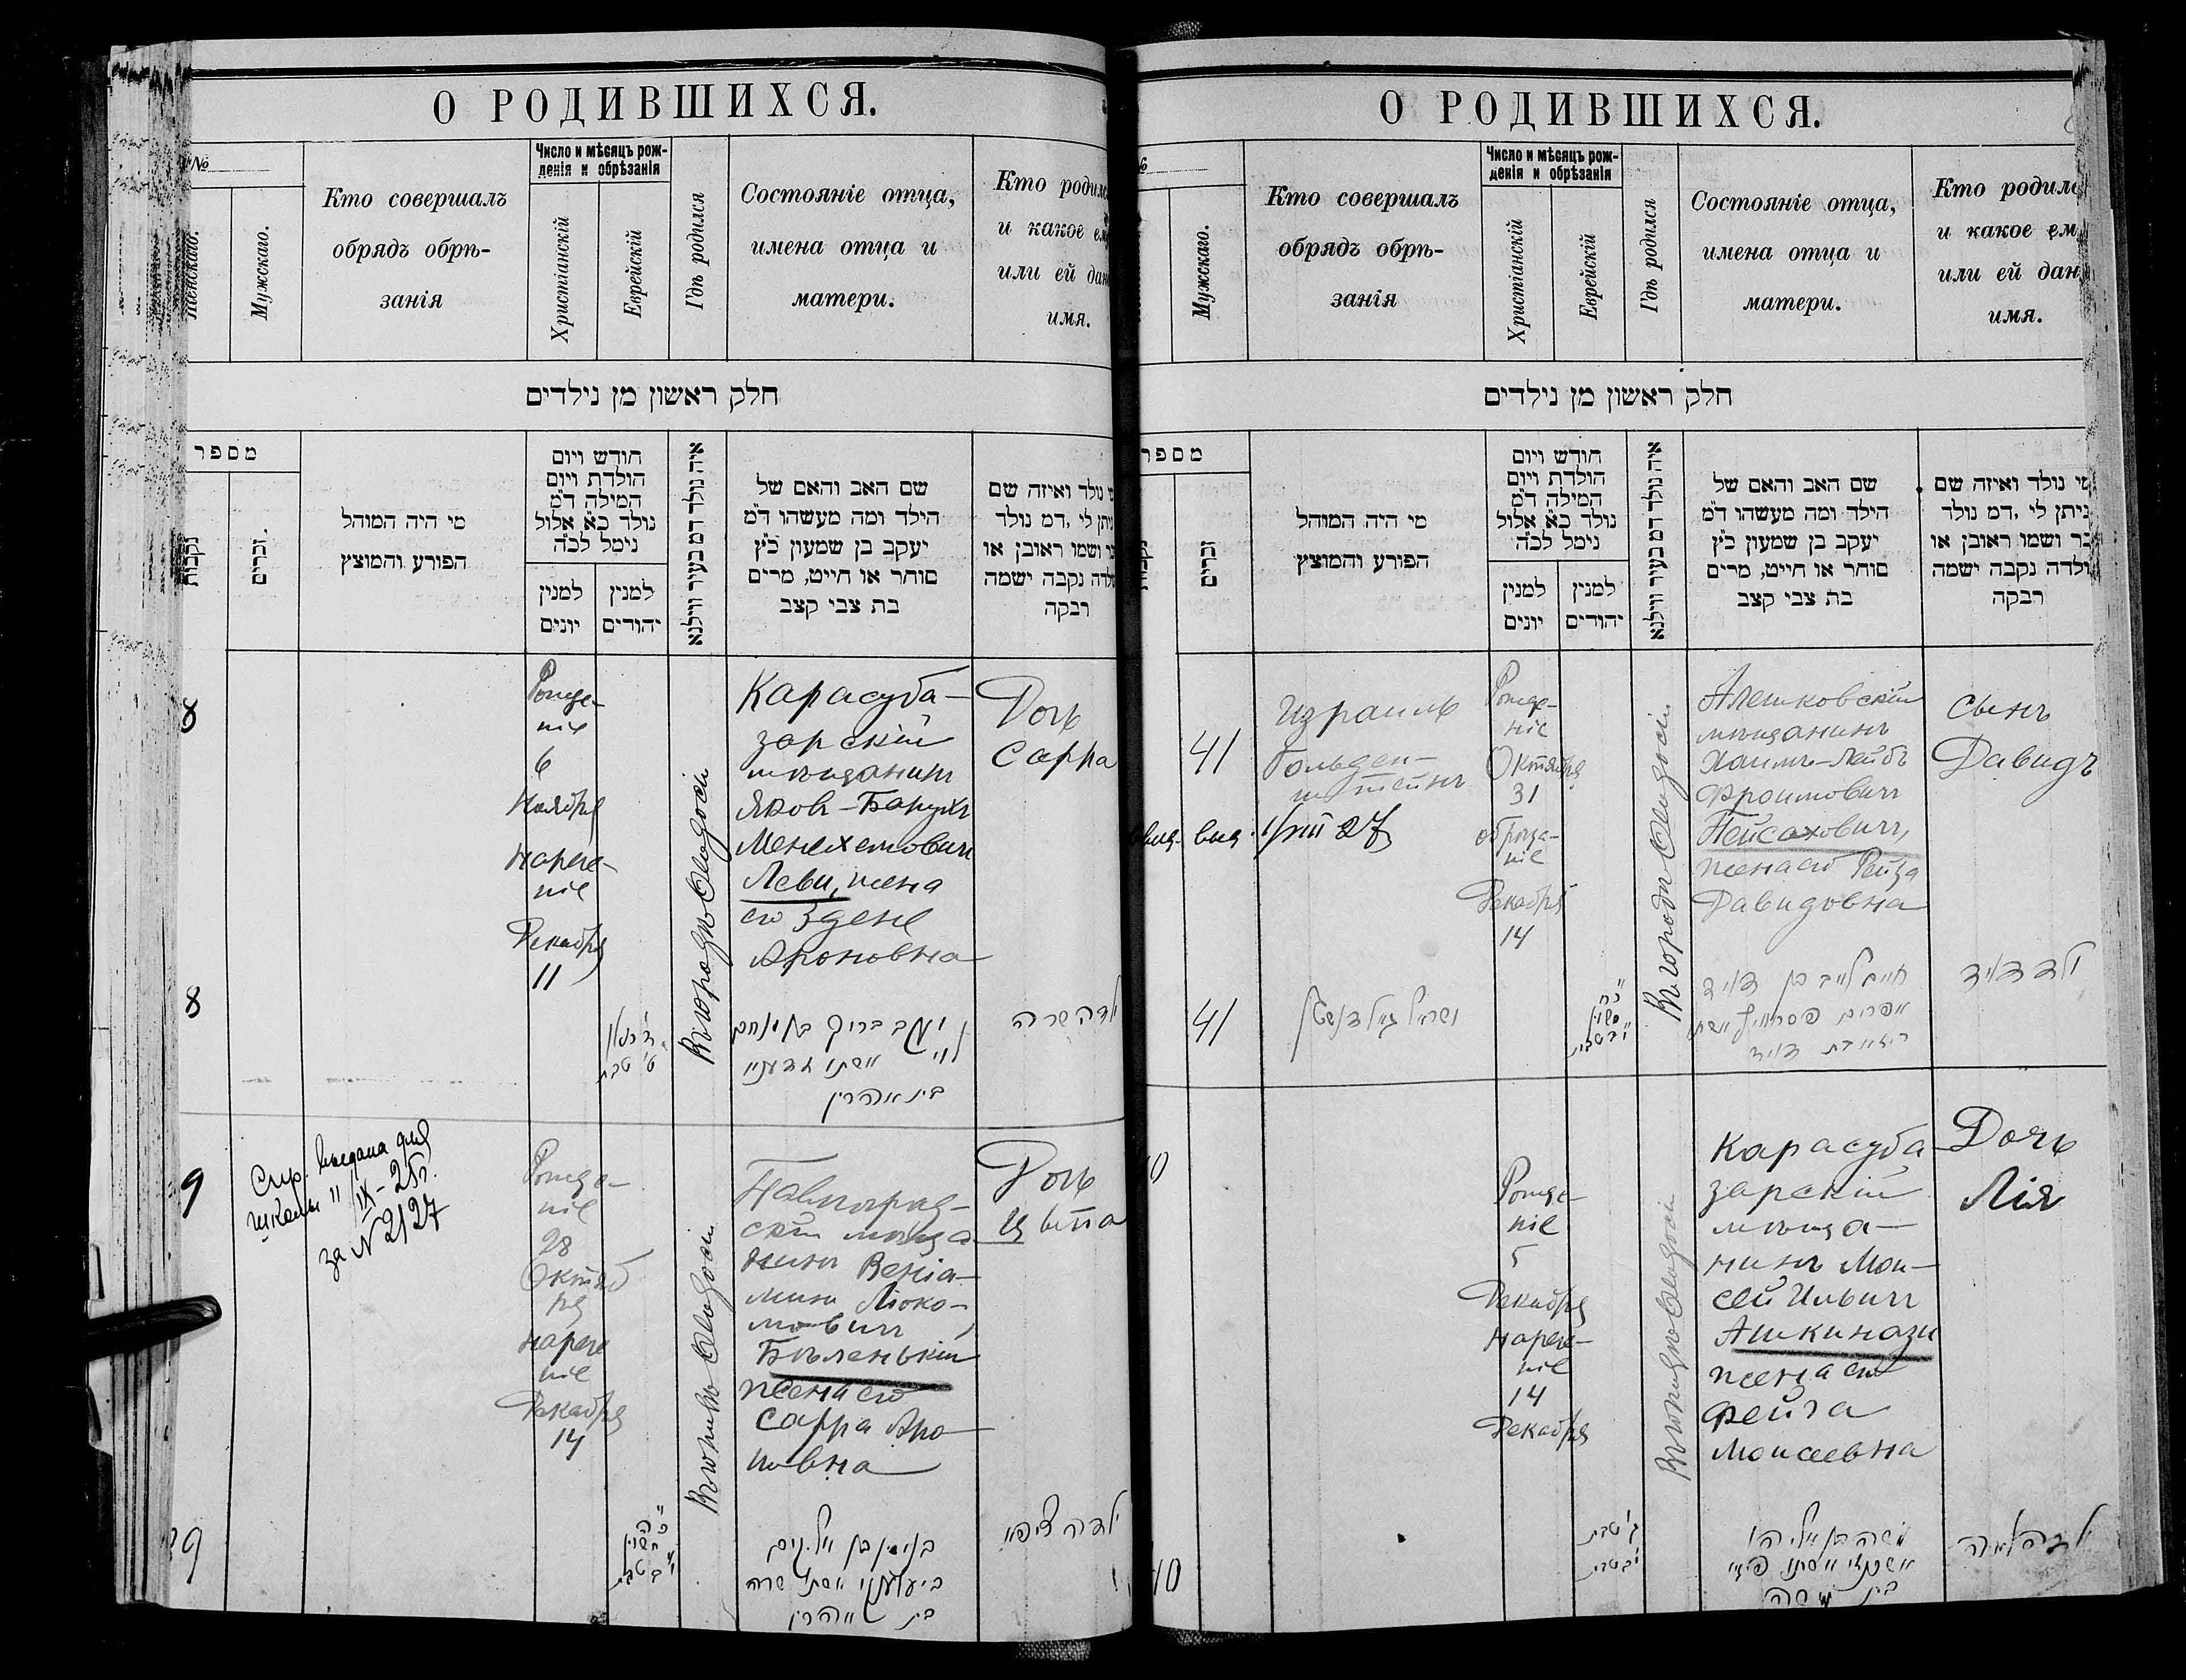 О РОДИВШИХСЯ.
№
Женскаго.
Мужскаго.
Кто совершалъ
обрядъ обрѣ-
занія
Число и мѣсяцъ рож-
денія и обрѣзанія
Христіанскій
Еврейскій
Гдѣ родился
Состояніе отца,
имена отца и
матери.
Кто родился
и какое ему
или ей дано
имя.
חלק ראשון מן נילדים
מספר
נקבות
זכרים.
מי היה המוהל
הפורע והמוצץ
חודש ויום
הולדת ויום
המילה ד״מ
נולד כ״א אלול
נימל לכ״ה
למנין
יונים
למנין
יהודים
איה נולד דמ בעיר ווילנא
שם האב והאם של
הילד ומה מעשהו ד״מ
יעקב בן שמעון כ״ץ
סוחר או חייט, מרים
בת צבי קצב
מי נולד ואיזה שם
ניתן לו, דמ נולד
זכר ושמו ראובן או
ילדה נקבה ישמה
רבקה
8
Рожде-
ніе
6
Ноября
Нарече-
ніе
Декабря
11
Въ городѣ Ѳеодосіи
Карасуба-
зарскій
мѣщанинъ
Яковъ-Барухъ
Менехемовичъ
Леви, жена
его Эдене
Ароновна
Дочь
Сарра
8
ט׳ טבת
יעקב ברוך בן מנחם
לוי אשתו
בת אהרן
ילדה שרה
9
Спр. выдана для
школы " /IX-25г.
за N 2127
Рожде-
ніе
28
Октяб
ря
Нарече
ніе
Декабря
14
Въ городѣ Ѳеодосіи
Павлоград-
скій мѣща-
нинъ Веніа-
минъ
Бѣленькій
жена его
Сарра Аро-
новна
Дочь
Цыпа
39
כ״ה
חשון
י״ב טבת
בנימין בן
אשתו שרה
בת אהרן
ילדה ציפא
О РОДИВШИХСЯ.
№
Мужскаго.
Кто совершалъ
обрядъ обрѣ-
занія
Число и мѣсяцъ рож-
денія и обрѣзанія
Христіанскій
Еврейскій
Гдѣ родился
Состояніе отца,
имена отца и
матери.
Кто родился
и какое ему
или ей дано
имя.
חלק ראשון מן נילדים
מספר
נקבות
זכרים
מי היה המוהל
הפורע והמוצץ
חודש ויום
הולדת ויום
המילה ד״מ
נולד כ״א אלול
נימל לכ״ה
למנין
יונים
למנין
יהודים
איה נולד דמ בעיר ווילנא
שם האב והאם של
הילד ומה מעשהו ד״מ
יעקב בן שמעון כ״ץ
סוחר או חייט, מרים
בת צבי קצב
מי נולד ואיזה שם
ניתן לו, דמ נולד
זכר ושמו ראובן או
ילדה נקבה ישמה
רבקה
41
Израиль
Гольден-
штейнъ
Рожде-
ніе
Октября
31
обрѣза-
ніе
Декабря
14
Въ городѣ Ѳеодосіи
Алешковскій
мѣщанинъ
Хаимъ-Лейбъ
Фроимовичъ
Пейсаховичъ,
жена его Рейза
Давидовна
Сынъ
Давидъ
41
ישראל גאלדנשטיין
כ״ח
חשון
י״ב טבת
חיים לייב בן
אפרים אשתו
רייזא בת דוד
ילד דוד
40
Рожде-
ніе
5
Декабря
Нарече-
ніе
14
Декабря
Въ городѣ Ѳеодосіи
Карасуба
зарскій
мѣща-
нинъ Мои-
сей Ильичъ
Ашкинази
жена его
Фейга
Моисеевна
Дочь
Лія
40
ג׳ טבת
י״ב טבת
משה בן אליהו
אשכנזי אשתו פייגא
בת משה
ילדה לאה